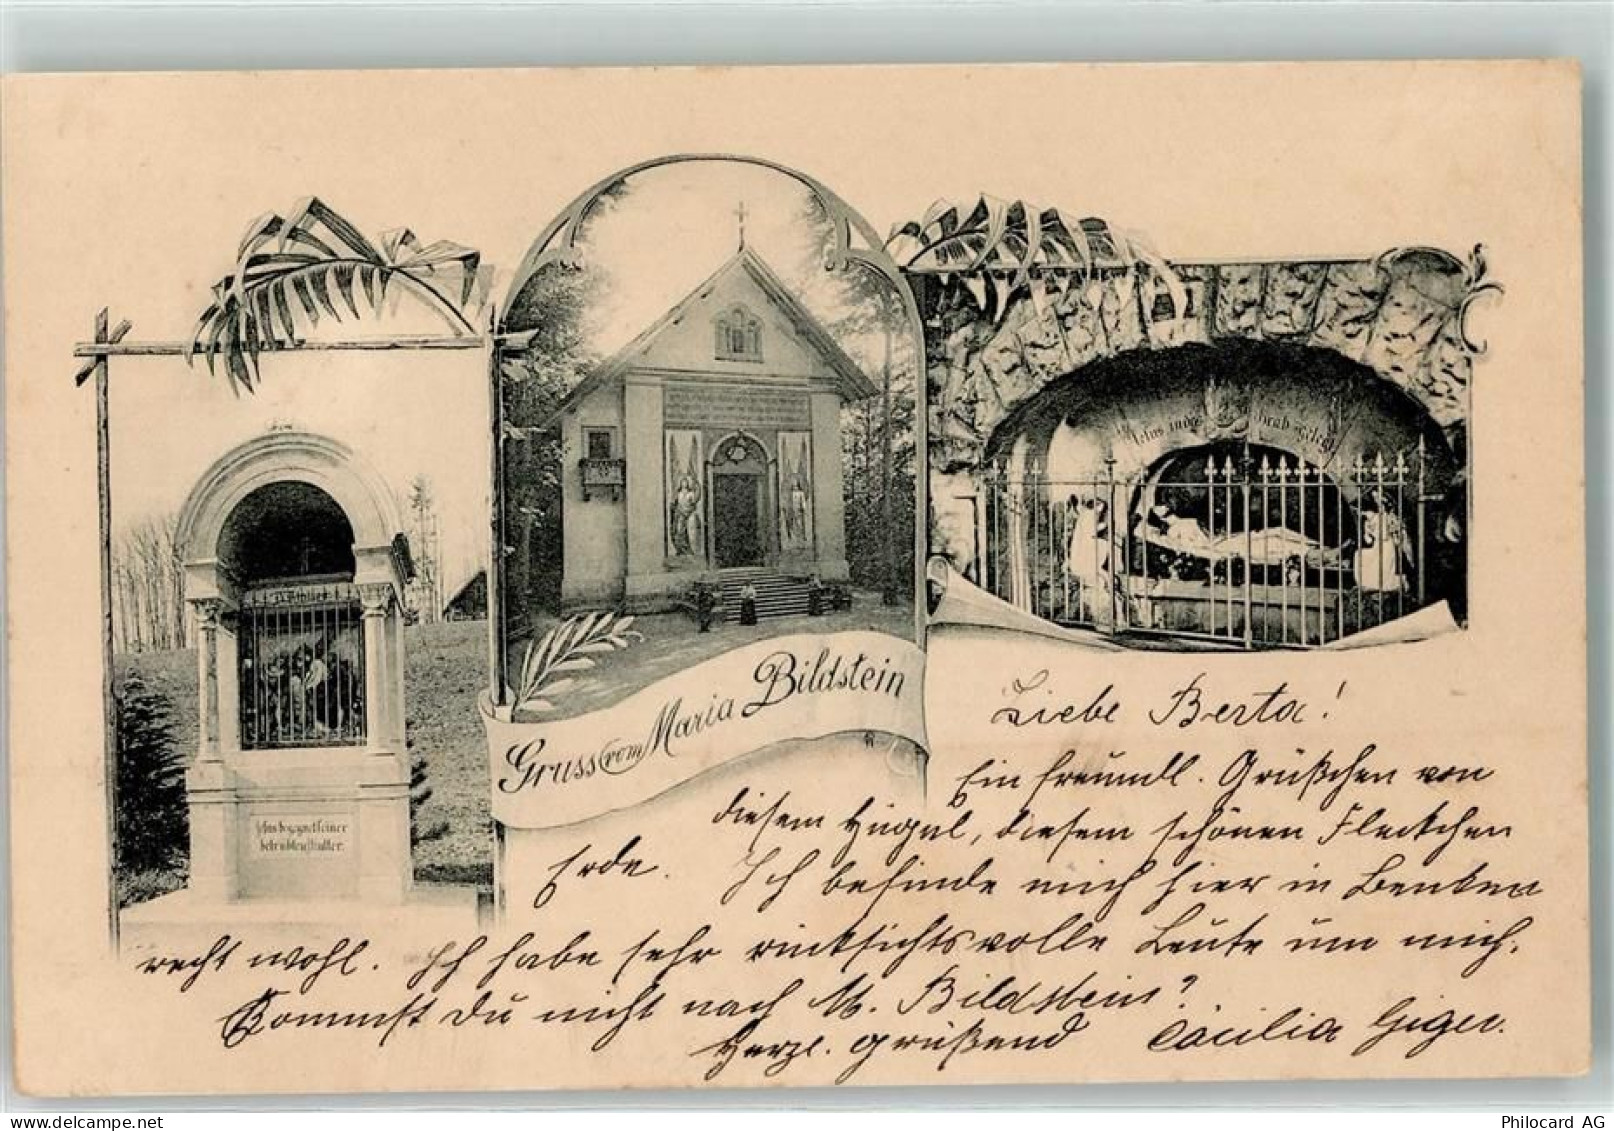 Jesus begegnet seiner
betrübten Mutter.
Gruss vom Maria Bildstein
Liebe Berta!
Ein freundl. Grüßchen von
diesem Hügel, diesem schönen Fleckchen
Erde. Ich befinde mich hier in Benken
recht wohl. Ich habe sehr rücksichtsvolle Leute um mich.
Kommst Du nicht nach M. Bildstein?
Herzl. grüßend Cäcilia Giger.
Philocard AG